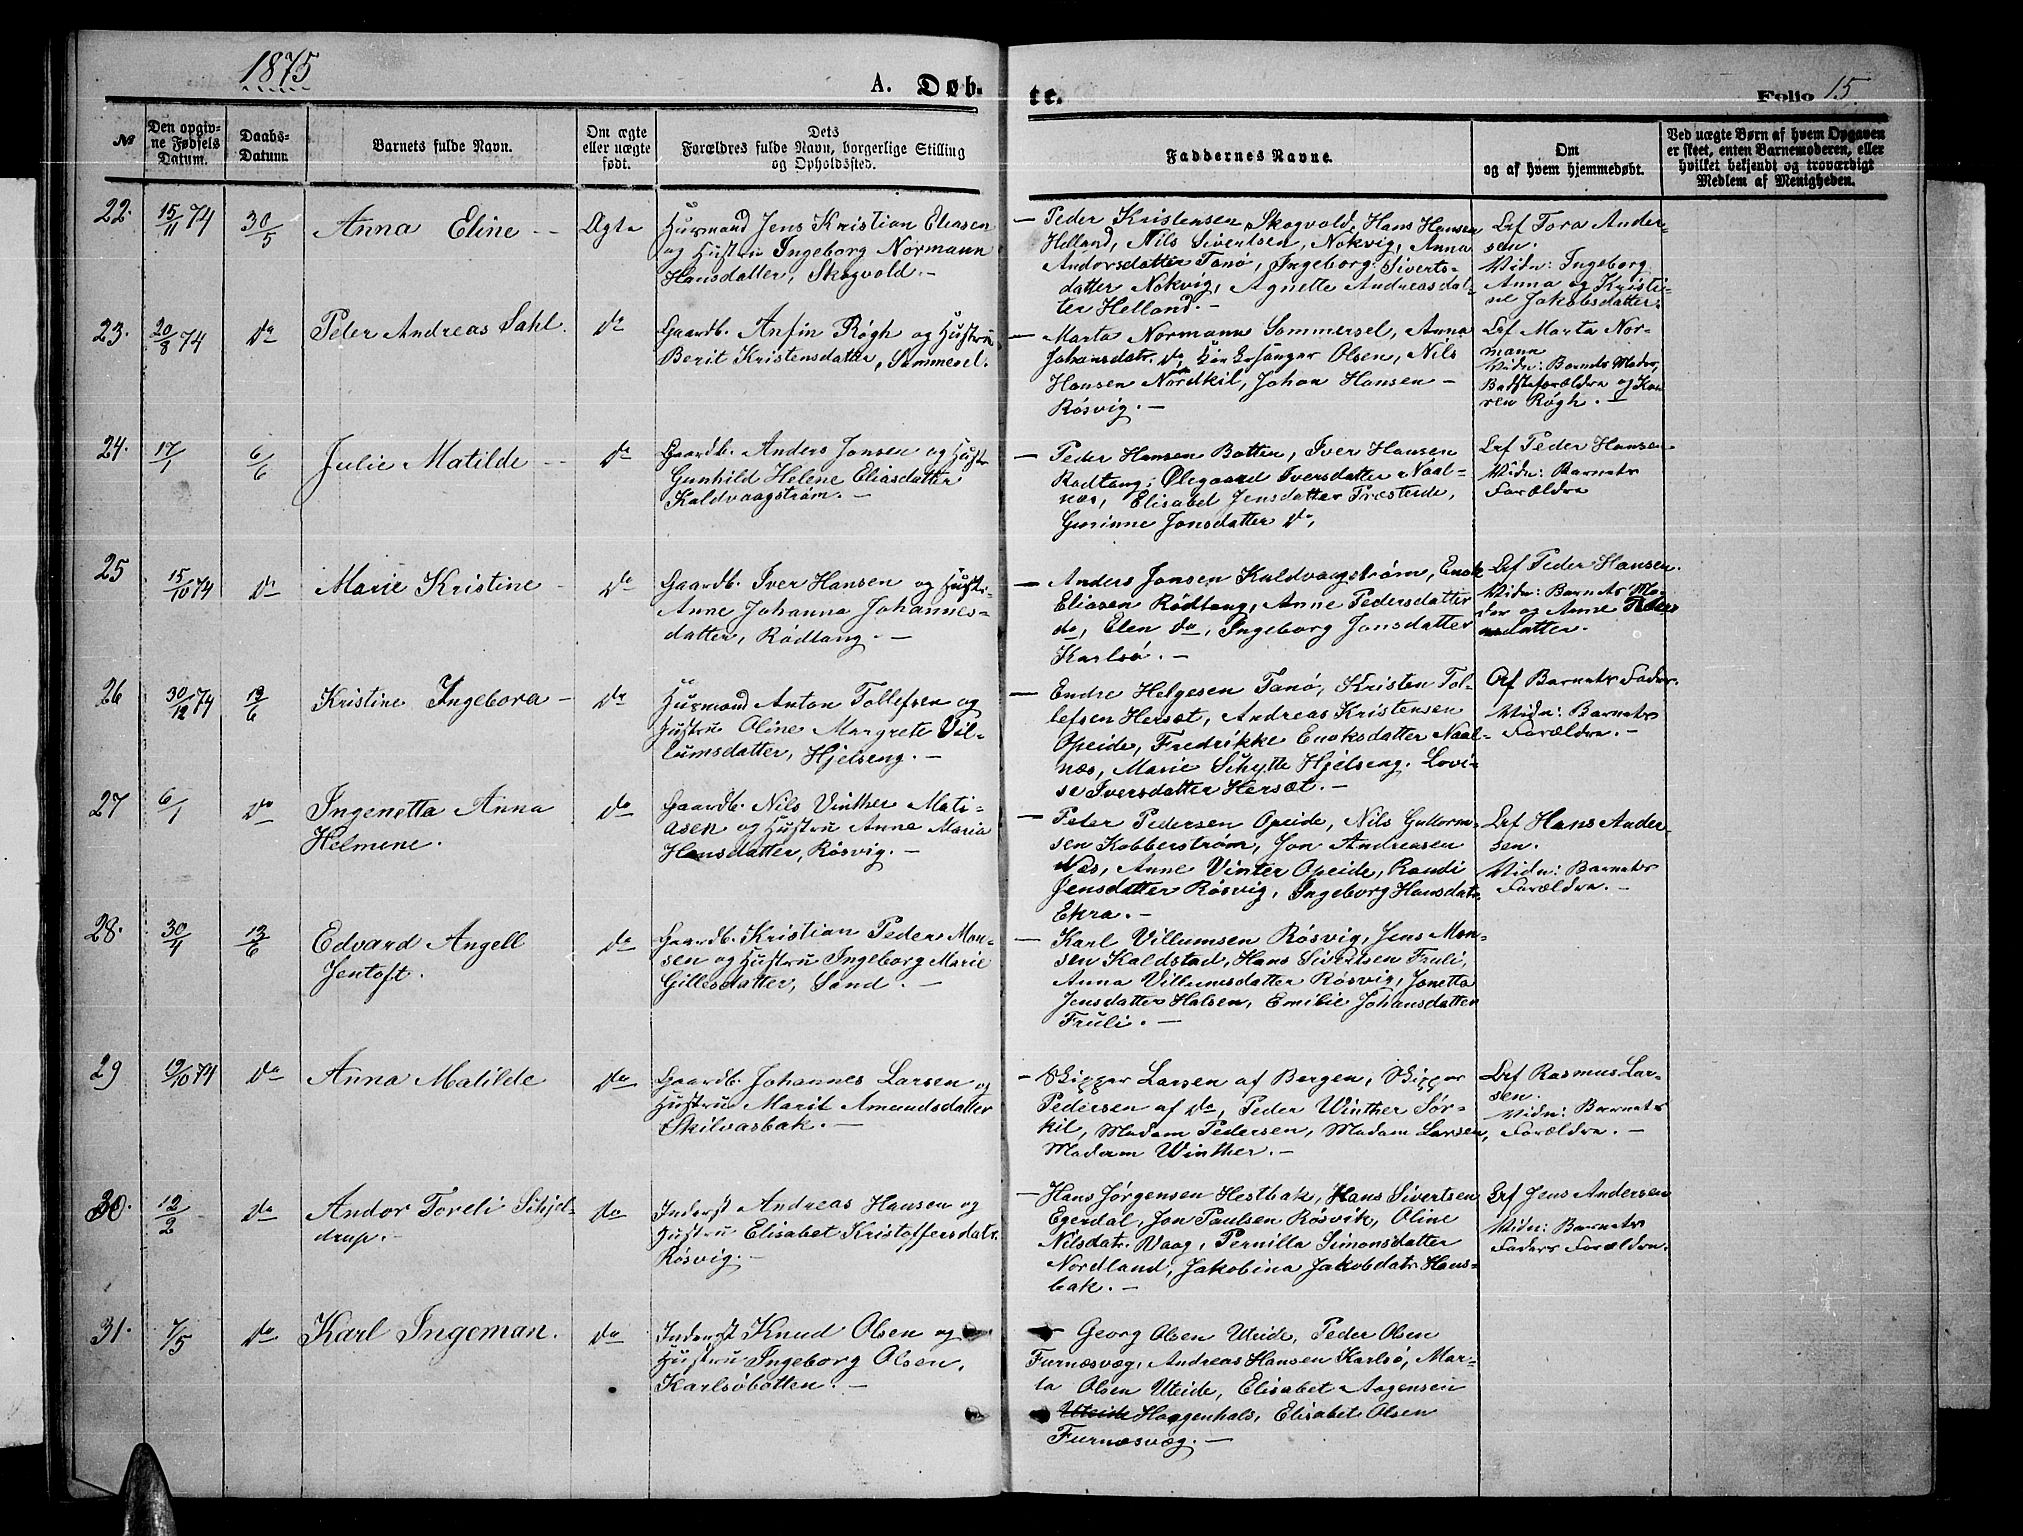 1875
A. Døb-
te.
Folio 15.
№
Den opgiv-
ne Fødsels
Datum.
Daabs-
Datum.
Barnets fulde Navn.
Om ægte
eller uægte
født.
Dets
Forældres fulde Navn, borgerlige Stilling
og Opholdssted.
Faddernes Navne.
Om
og af hvem hjemmedøbt.
Ved uægte Børn af hvem Opgaven
er skeet, enten Barnemoderen, eller
hvilket bekjendt og troværdigt
Medlem af Menigheden.
22. 15/11 74 30/5 Anna Eline - Ægte
Husmand Jens Kristian Eliasen
og Hustru Ingeborg Normann
Hansdatter, Skogvold. -
- Peder Kristensen Skogvold, Hans Hansen
Helland, Nils Sivertsen, Nokvig, Anna
Andorsdatter Tanø, Ingeborg Siverts-
datter Nokvig, Agnette Andreasdat-
ter Helland. -
Lrf Tora Ander-
sen.
Vidn: Ingeborg
Anna og Kristi-
ne Jakobsdatter.
23. 20/8 74 do Peter Andreas Dahl. do
Gaardb. Anfin Røgh og Hustru
Berit Kristensdatter, Sommersel.
- Marta Normann Sommersel, Anna
Johansdatr. do, Olsen, Nils
Hansen Nordkil, Johan Hansen -
Rösvig. -
Lrf Marta Nor-
mann
Vidn: Barnets Moder,
Bedsteforældre og Ka-
ren Røgh. -
24. 17/1 6/6 Julie Matilde - do
Gaardb. Anders Jonsen og Hustru
Gunhild Helene Eliasdatter
Kaldvaagstrøm. -
- Peder Hansen Botten, Iver Hansen
Rødtang, Olegaard Iversdatter Naal-
næs, Elisabet Jensdatter Præsteide,
Gurinne Jonsdatter do,
Lrf Peder Hansen
Vidn: Barnets
Forældre
25 15/10 74 do Marie Kristine - do
Gaardb. Iver Hansen og Hustru
Anne Johanna Johannes-
datter, Rødtang. -
- Anders Jonsen Kaldvaagstrøm, Enok
Eliasen Rødtang, Anne Pedersdatter
do, Elen do, Ingeborg Jonsdatter
Karlsö. -
Lrf Peder Hansen.
Vidn: Barnets Mo-
der og Anne Peders
datter.
26 30/12 74 13/6 Kristine Ingebora - do
Husmand Anton Tollefsen og
Hustru Oline Margrete Vil-
lumsdatter, Hjelseng. -
- Endre Helgesen Tanø, Kristen Tol-
lefsen Hersæt, Andreas Kristensen
Opeide, Fredrikke Enoksdatter Naal-
næs, Marie Schytte Hjelseng. Lovi-
se Iversdatter Hersæt. -
Af Barnets Fader.
Vidn: Barnets
Forældre. -
27 6/1 do Ingenetta Anna
Helmine. do
Gaardb. Nils Vinther Mati-
asen og Hustru Anne Maria
Hansdatter, Rösvig. -
- Peter Pedersen Opeide, Nils Guttorm-
sen Kobberstrøm, Jon Andreasen
Nes, Anne Vinter Opeide, Randi
Jensdatter Rösvig, Ingeborg Hansdatr.
Ekra. -
Lrf Hans Ander-
sen.
Vidn: Barnets
Forældre. -
28. 30/4 13/6 Edvard Angell
Jentoft. do
Gaardb. Kristian Peder Mon-
sen og Hustru Ingeborg Marie
Gillesdatter, Sand. -
- Karl Villumsen Rösvig, Jens Mon-
sen Kaldstad, Hans Sivertsen Fruli,
Anna Villumsdatter Rösvig, Jonetta
Jensdatter Halsen, Emilie Johansdatter
Fruli. -
29 19/10 74 do Anna Matilde do
Gaardb. Johannes Larsen og
Hustru Marit Amundsdatter
Skilvasbak. -
- Skipper Larsen af Bergen, Skipper
Pedersen af do, Peder Winther Sör-
kil, Madam Pedersen, Madam Larsen,
Madam Winther. -
Lrf Rasmus Lar-
sen.
Vidn: Barnets
Forældre. -
30. 12/2 do Andor Toreli Schjel-
drup. - do
Inderst Andreas Hansen og
Hustru Elisabet Kristoffersdatr.
Rösvig. -
- Hans Jørgensen Hestbak, Hans Sivertsen
Egerdal, Jon Paulsen Rösvik, Oline
Nilsdatr. Vaag, Pernilla Simonsdatter
Nordland, Jakobina Jakobdatr Hans-
bak. -
Lrf Jens Andersen
Vidn: Barnets
Faders Forældre.
31. 7/5 do Karl Ingeman. do
Inderst Knud Olsen og
Hustru Ingeborg Olsen,
Karlsöbotten. -
- Georg Olsen Uteide, Peder Olsen
Furnæsvæg, Andreas Hansen Karlsö, Mar-
ta Olsen Uteide, Elisabet Aagensen
Uteide Haggenhals, Elisabet Olsen
Furnæsvæg. -